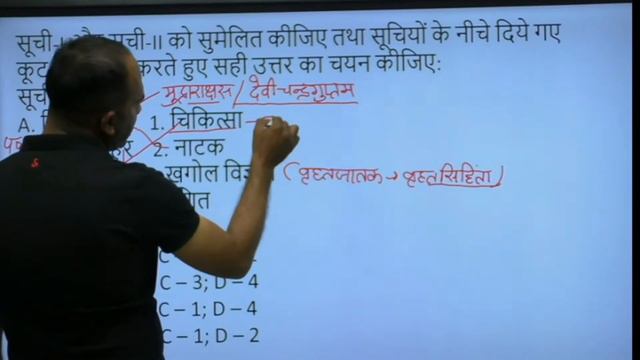 सूची-I सूची-II को सुमेलित कीजिए तथा सूचियों के नीचे दिये गए
कूट करते हुए सही उत्तर का चयन कीजिए:
सूची मुद्राराक्षस / देवी-चन्द्रगुप्तम
A. 1. चिकित्सा
2. नाटक
खगोल विज्ञान (वृहतजातक → वृहतसिहिंता)
C – 3; D – 4
C – 1; D – 4
C – 1; D – 2